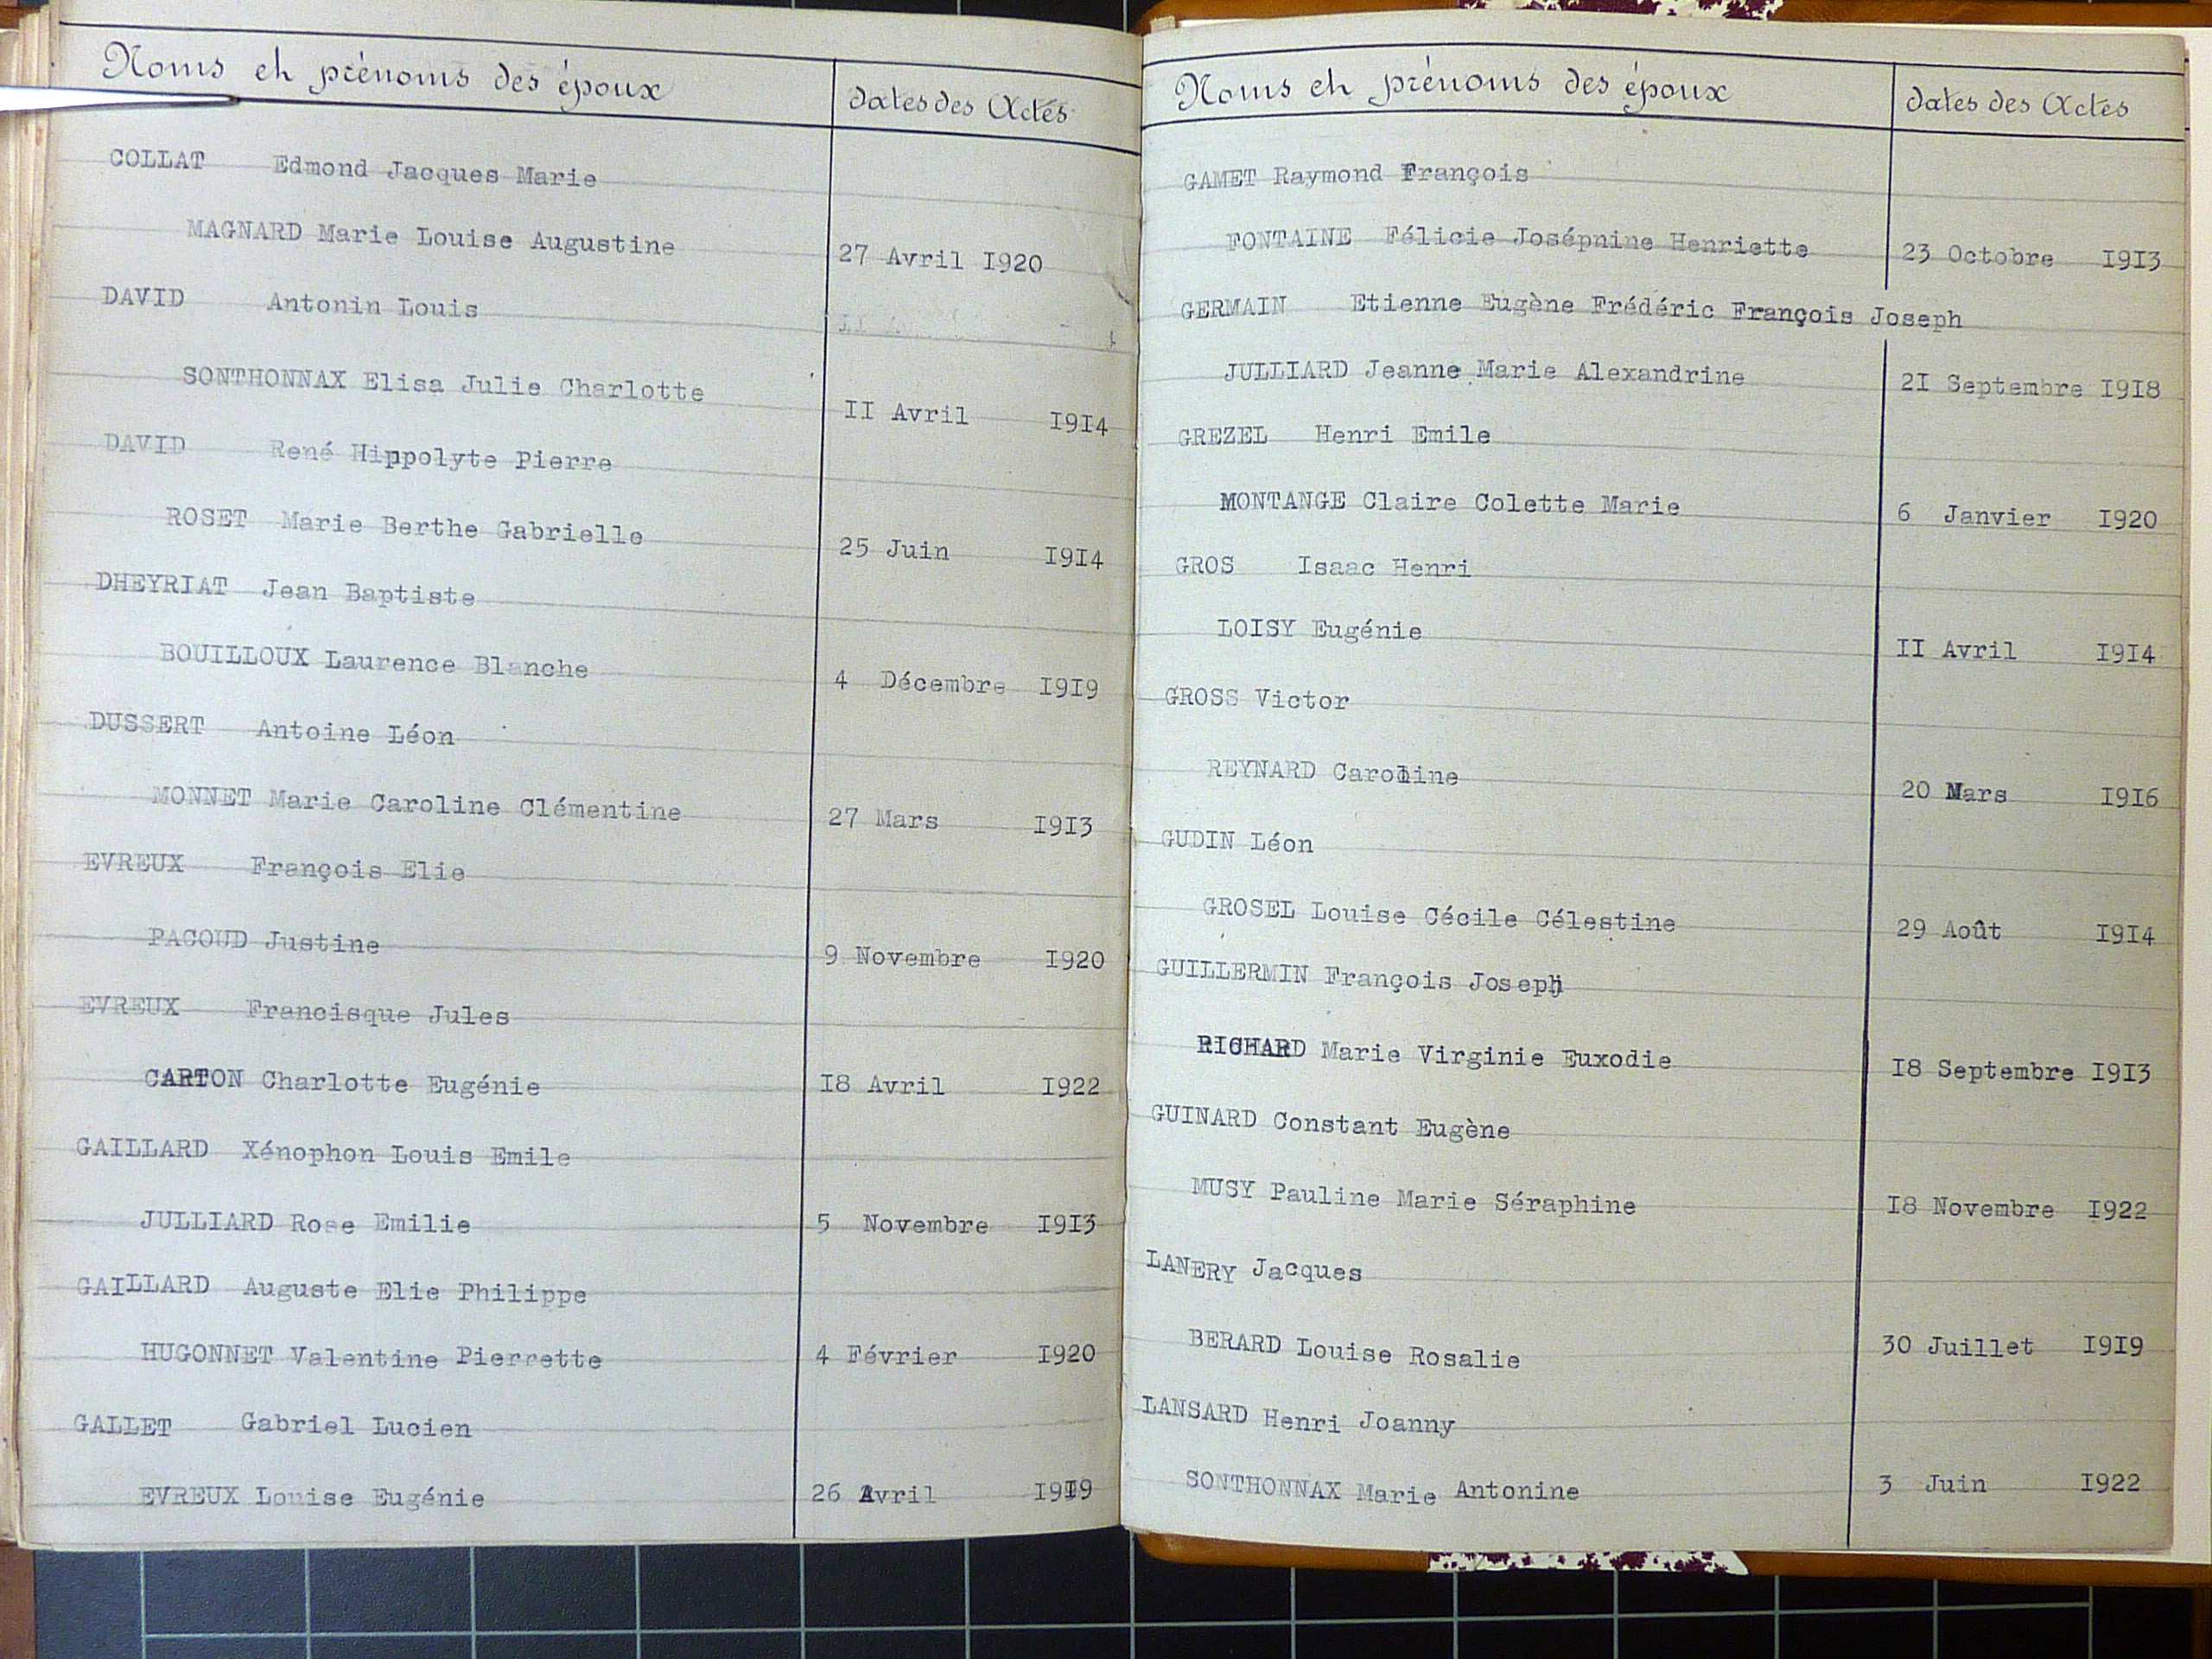 Noms et prénoms des époux dates des Actes
COLLAT Edmond Jacques Marie
MAGNARD Marie Louise Augustine 27 Avril I920
DAVID Antonin Louis
SONTHONNAX Elisa Julie Charlotte II Avril I9I4
DAVID René Hippolyte Pierre
ROSET Marie Berthe Gabrielle 25 Juin I9I4
DHEYRIAT Jean Baptiste
BOUILLOUX Laurence Blanche 4 Décembre I9I9
DUSSERT Antoine Léon
MONNET Marie Caroline Clémentine 27 Mars I9I3
EVREUX François Elie
PACOUD Justine 9 Novembre I920
EVREUX Francisque Jules
CARTON Charlotte Eugénie I8 Avril I922
GAILLARD Xénophon Louis Emile
JULLIARD Rose Emilie 5 Novembre I9I3
GAILLARD Auguste Elie Philippe
HUGONNET Valentine Pierrette 4 Février I920
GALLET Gabriel Lucien
EVREUX Louise Eugénie 26 Avril I9I9
Noms et prénoms des époux dates des Actes
GAMET Raymond François
FONTAINE Félicie Josépnine Henriette 23 Octobre I9I3
GERMAIN Etienne Eugène Frédéric François Joseph
JULLIARD Jeanne Marie Alexandrine 2I Septembre I9I8
GREZEL Henri Emile
MONTANGE Claire Colette Marie 6 Janvier I920
GROS Isaac Henri
LOISY Eugénie II Avril I9I4
GROSS Victor
REYNARD Caroline 20 Mars I9I6
GUDIN Léon
GROSEL Louise Cécile Célestine 29 Août I9I4
GUILLERMIN François Joseph
RICHARD Marie Virginie Euxodie I8 Septembre I9I3
GUINARD Constant Eugène
MUSY Pauline Marie Séraphine I8 Novembre I922
LANERY Jacques
BERARD Louise Rosalie 30 Juillet I9I9
LANSARD Henri Joanny
SONTHONNAX Marie Antonine 3 Juin I922